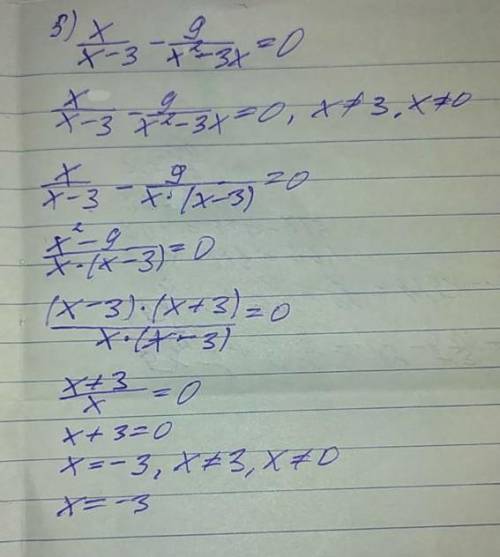 в) x/(x-3) - 9/(x²-3x) = 0
x/(x-3) - 9/(x²-3x) = 0, x≠3, x≠0
x/(x-3) - 9/(x·(x-3)) = 0
(x²-9)/(x·(x-3)) = 0
((x-3)·(x+3))/(x·(x-3)) = 0
(x+3)/x = 0
x+3=0
x=-3, x≠3, x≠0
x=-3